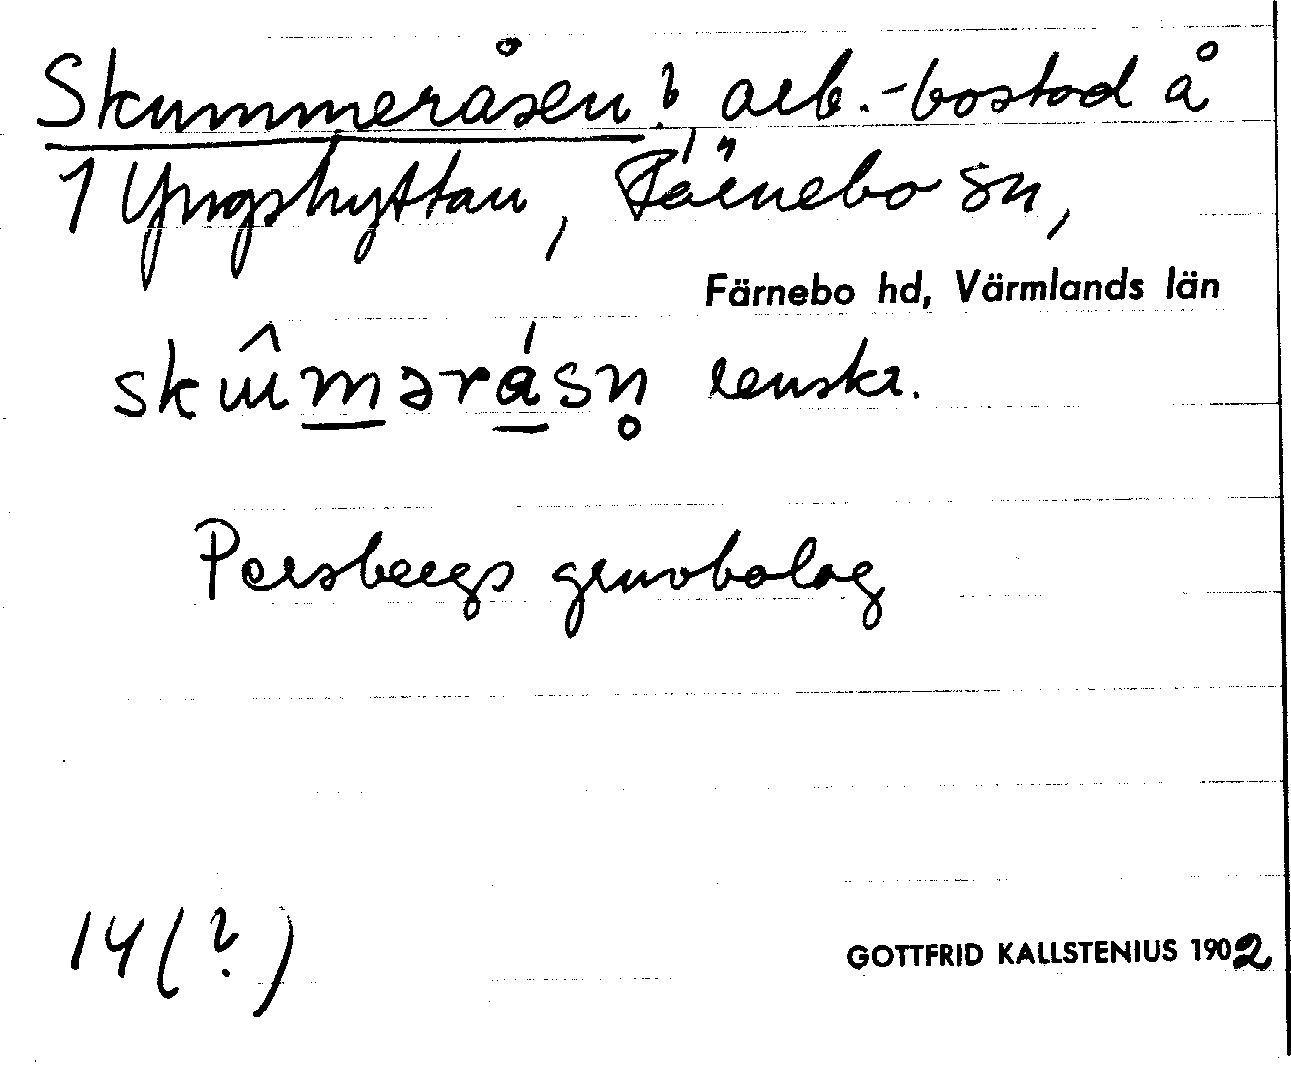 Skummeråsen? arb.-bostad å
1 Yngshyttan, Färnebo sn,
Färnebo hd, Värmlands län
skɯ̂m̲ərá̲sn̥ renskr.
Persbergs gruvbolag
14(?)
GOTTFRID KALLSTENIUS 1902